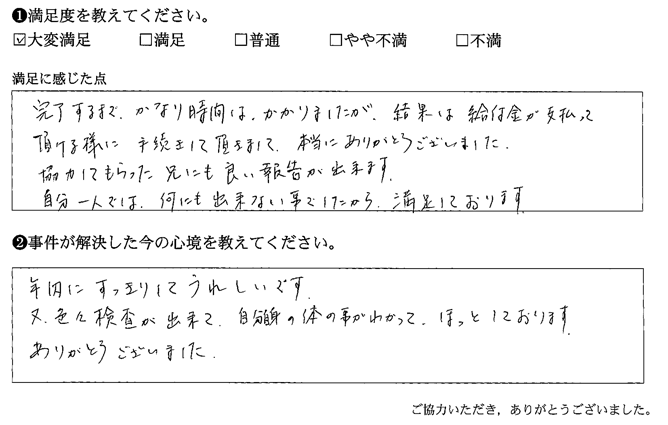 ❶満足度を教えてください。
☑大変満足 □満足 □普通 □やや不満 □不満
満足に感じた点
完了するまで、かなり時間は、かかりましたが、結果は給付金が支払って
頂ける様に手続きして頂きまして、本当にありがとうございました。
協力してもらった兄にも良い報告が出来ます。
自分一人では、何にも出来ない事でしたから、満足しております。
❷事件が解決した今の心境を教えてください。
年内にすっきりしてうれしいです。
又、色々検査が出来て、自分自身の体の事がわかって、ほっとしております。
ありがとうございました。
ご協力いただき，ありがとうございました。